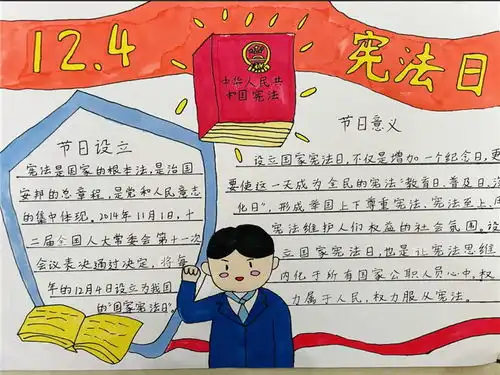 12.4 宪法日
中华人民共
和国宪法
节日设立
宪法是国家的根本法,是治国
安邦的总章程,是党和人民意志
的集中体现。2014年11月1日,十
二届全国人大常委会第十一次
会议表决通过决定,将每
年的12月4日设立为我国
的"国家宪法日"。
节日意义
设立国家宪法日,不仅是增加一个纪念日,更
要使这一天成为全民的宪法"教育日、普及日、深
化日",形成举国上下尊重宪法、宪法至上、用
宪法维护人们权益的社会氛围。设
立国家宪法日,也是让宪法思维
内化于所有国家公职人员心中,权
力属于人民,权力服从宪法。